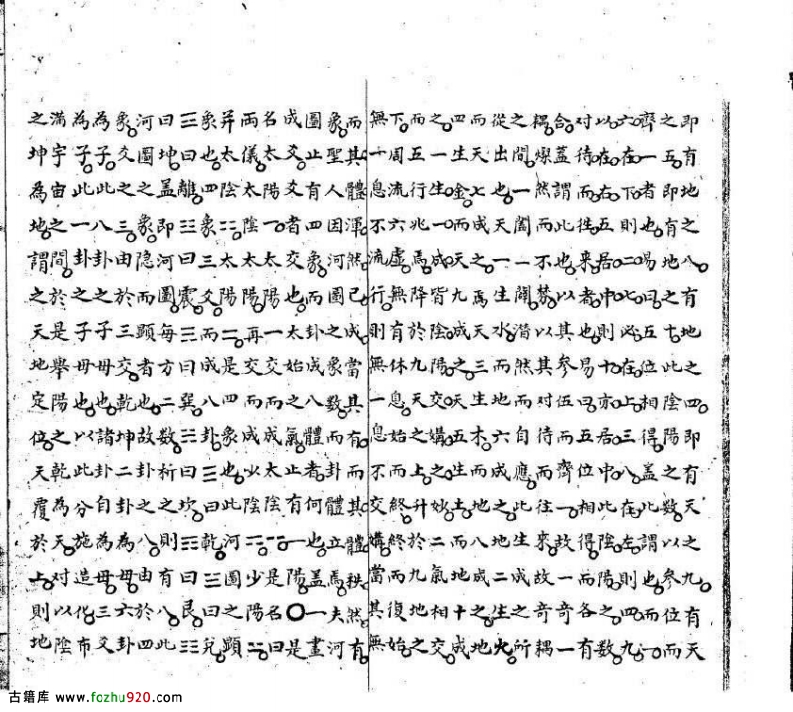 即有地之八有地之四即有天之九有天
之五即有地之十此陰陽之數以参位而
齊一者也易曰五位相得蓋此謂也而一
六在下則二七必在上三八在左則四九
以在右五居中則十亦居中此陰陽之數
対待而徃来者也易曰五位相得而各有
合蓋謂此也以其参伍而齊一故一竒一
耦燦然而不禁以其対待而徃来故竒耦
之間一闔一闢潜然而自應此生成之所
從出也天一生水而地六成之地二生火
而天七成之焉天三生木而地八成之地
四生金而天九成之天五生土而地十成
之一生一成皆陰陽交媾之妙二氣相交
而五行兆焉降於九天之上升於九地之
下周流六虛無有休息始而終終而復始
無一息不流行則無一息不交媾當其無
而其體渾然已成當其有而其體秩然有
象聖人因河圖之象數而卦體立焉夫河
圖止有四象而卦成八體者何也蓋一畫
成爻爻者交也太始之氣止有一陽〇是
名太陽一太陽一交而成太陰⚋是名曰
兩儀太陰太陽再交而成少陰⚎少陽⚍
并太陰⚏太陽⚌是四象也此河圖之顕
象也四象三爻而成八卦☰曰乾☱曰兌
☲曰離☳曰震☴曰巽☵曰坎☶曰艮☷
曰坤蓋即河圖每方二數析之則有八此
河圖之象隐而顕者也故卦之八由於四
象爻之三由於三交乾坤二卦為母六卦
為子此八卦之子母也諸卦自為母三爻
為子此一卦之子母也以此分施造化布
滿宇宙之間於是舉陽之乾為天対以陰
之坤為地謂之天地定位天覆於上則地